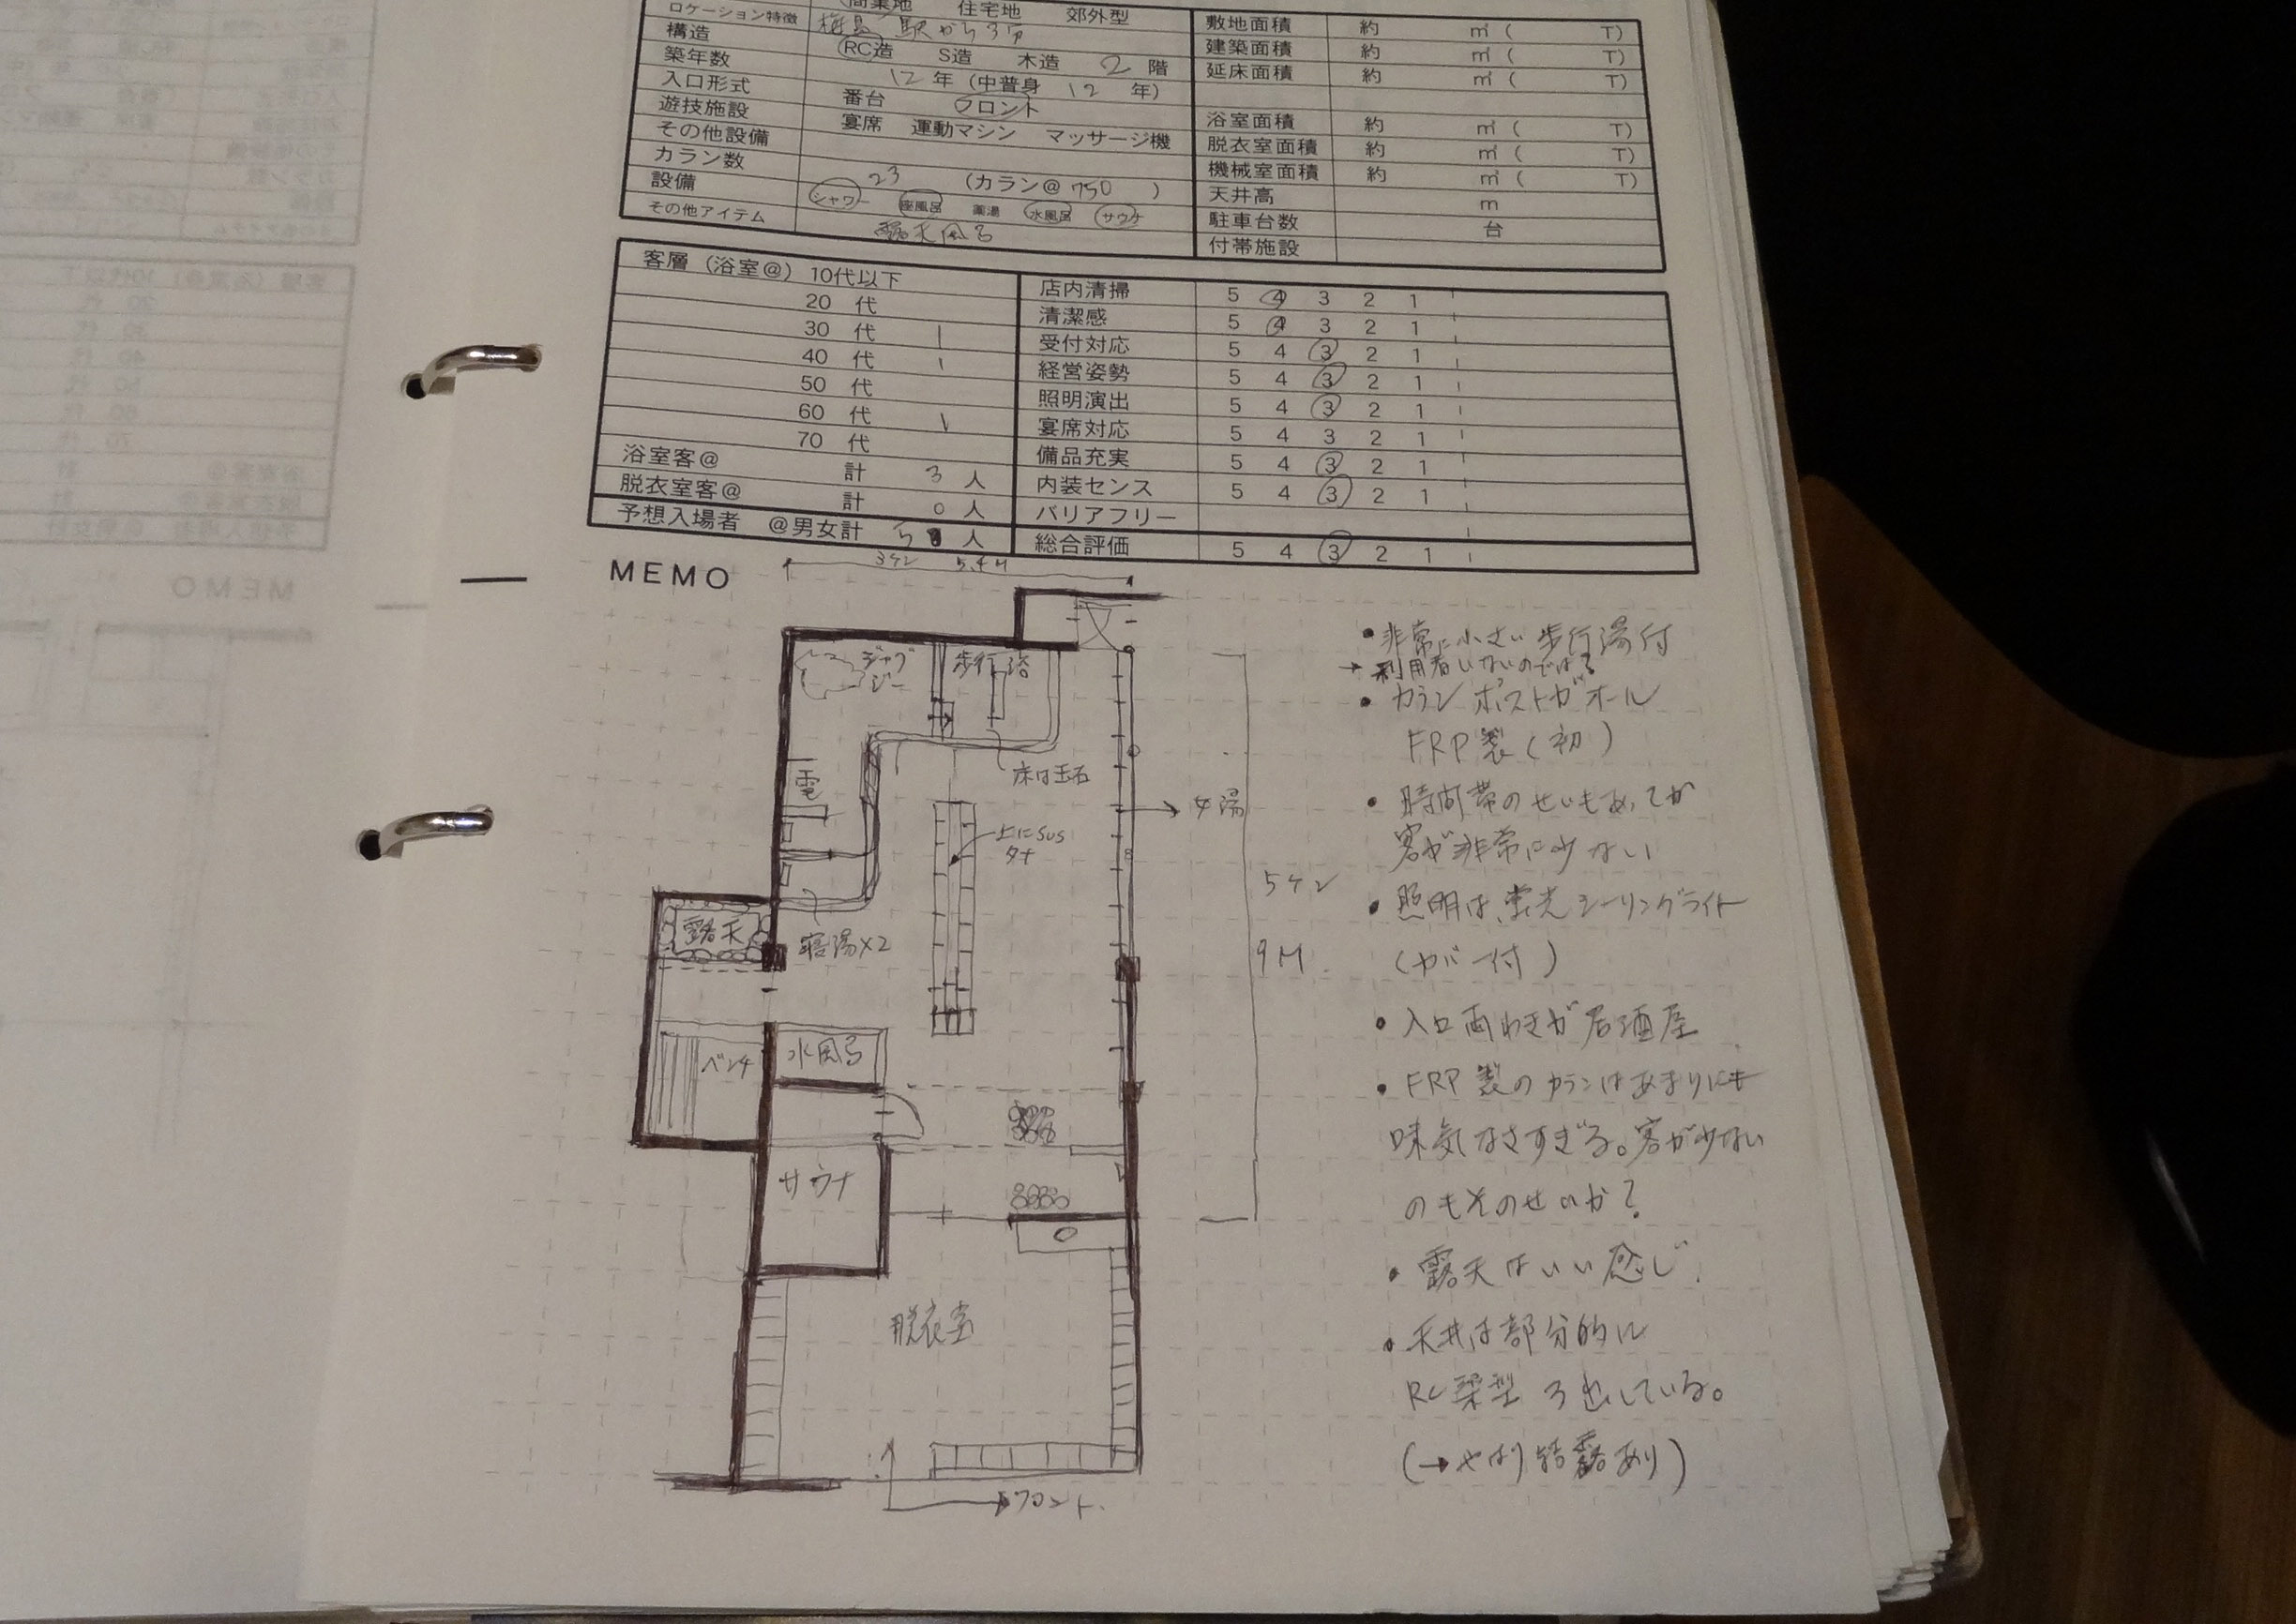 ロケーション特徴 商業地 住宅地 郊外型
梅島 駅から3分
構造 RC造 S造 木造 2 階
築年数 12 年 (中普身 12 年)
入口形式 番台 フロント
遊技施設 宴席 運動マシン マッサージ機
その他設備
カラン数 23 (カラン@ 750 )
設備 シャワー 座風呂 薬湯 水風呂 サウナ
その他アイテム 露天風呂
敷地面積 約 ㎡ ( T)
建築面積 約 ㎡ ( T)
延床面積 約 ㎡ ( T)
浴室面積 約 ㎡ ( T)
脱衣室面積 約 ㎡ ( T)
機械室面積 約 ㎡ ( T)
天井高 m
駐車台数 台
付帯施設
客層 (浴室@) 10代以下
20 代
30 代
40 代
50 代
60 代
70 代
浴室客@ 計 3 人
脱衣室客@ 計 0 人
予想入場者 @男女計 5 人
店内清掃 5 4 3 2 1
清潔感 5 4 3 2 1
受付対応 5 4 3 2 1
経営姿勢 5 4 3 2 1
照明演出 5 4 3 2 1
宴席対応 5 4 3 2 1
備品充実 5 4 3 2 1
内装センス 5 4 3 2 1
バリアフリー
総合評価 5 4 3 2 1
MEMO
3ケン 5.4M
ジャグ
ジー
歩行浴
床は玉石
電
上にSUS
タナ
女湯
5ケン
9M
露天
寝湯×2
ベンチ
水風呂
サウナ
脱衣室
フロント.
• 非常に小さい歩行湯付
→利用者いないのでは?
• カラン ポストがオール
FRP製(初)
• 時間帯のせいもあってか
客が非常に少ない
• 照明は、蛍光シーリングライト
(カバー付)
• 入口両わきが居酒屋
• FRP製のカランはあまりにも
味気なさすぎる。客が少ない
のもそのせいか?
• 露天はいい感じ.
• 天井は部分的に
RC梁型ろ出している。
(→やはり結露あり)